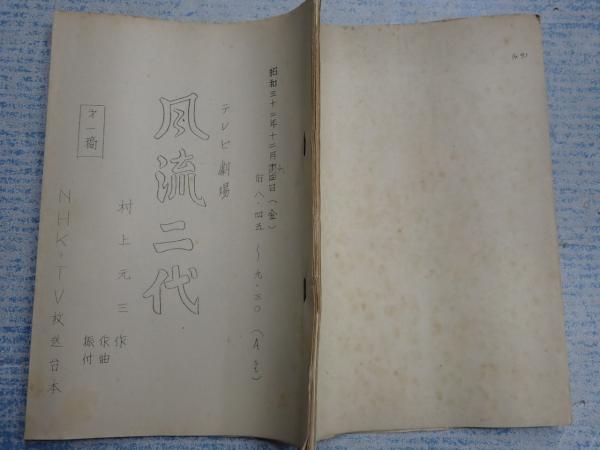 昭和三十二年十二月六日(金)
后八・四五 〜 九・三〇 (A
テレビ劇場
風流二代
村上元三 作
作曲
振付
才一稿
NHK・TV放送台本